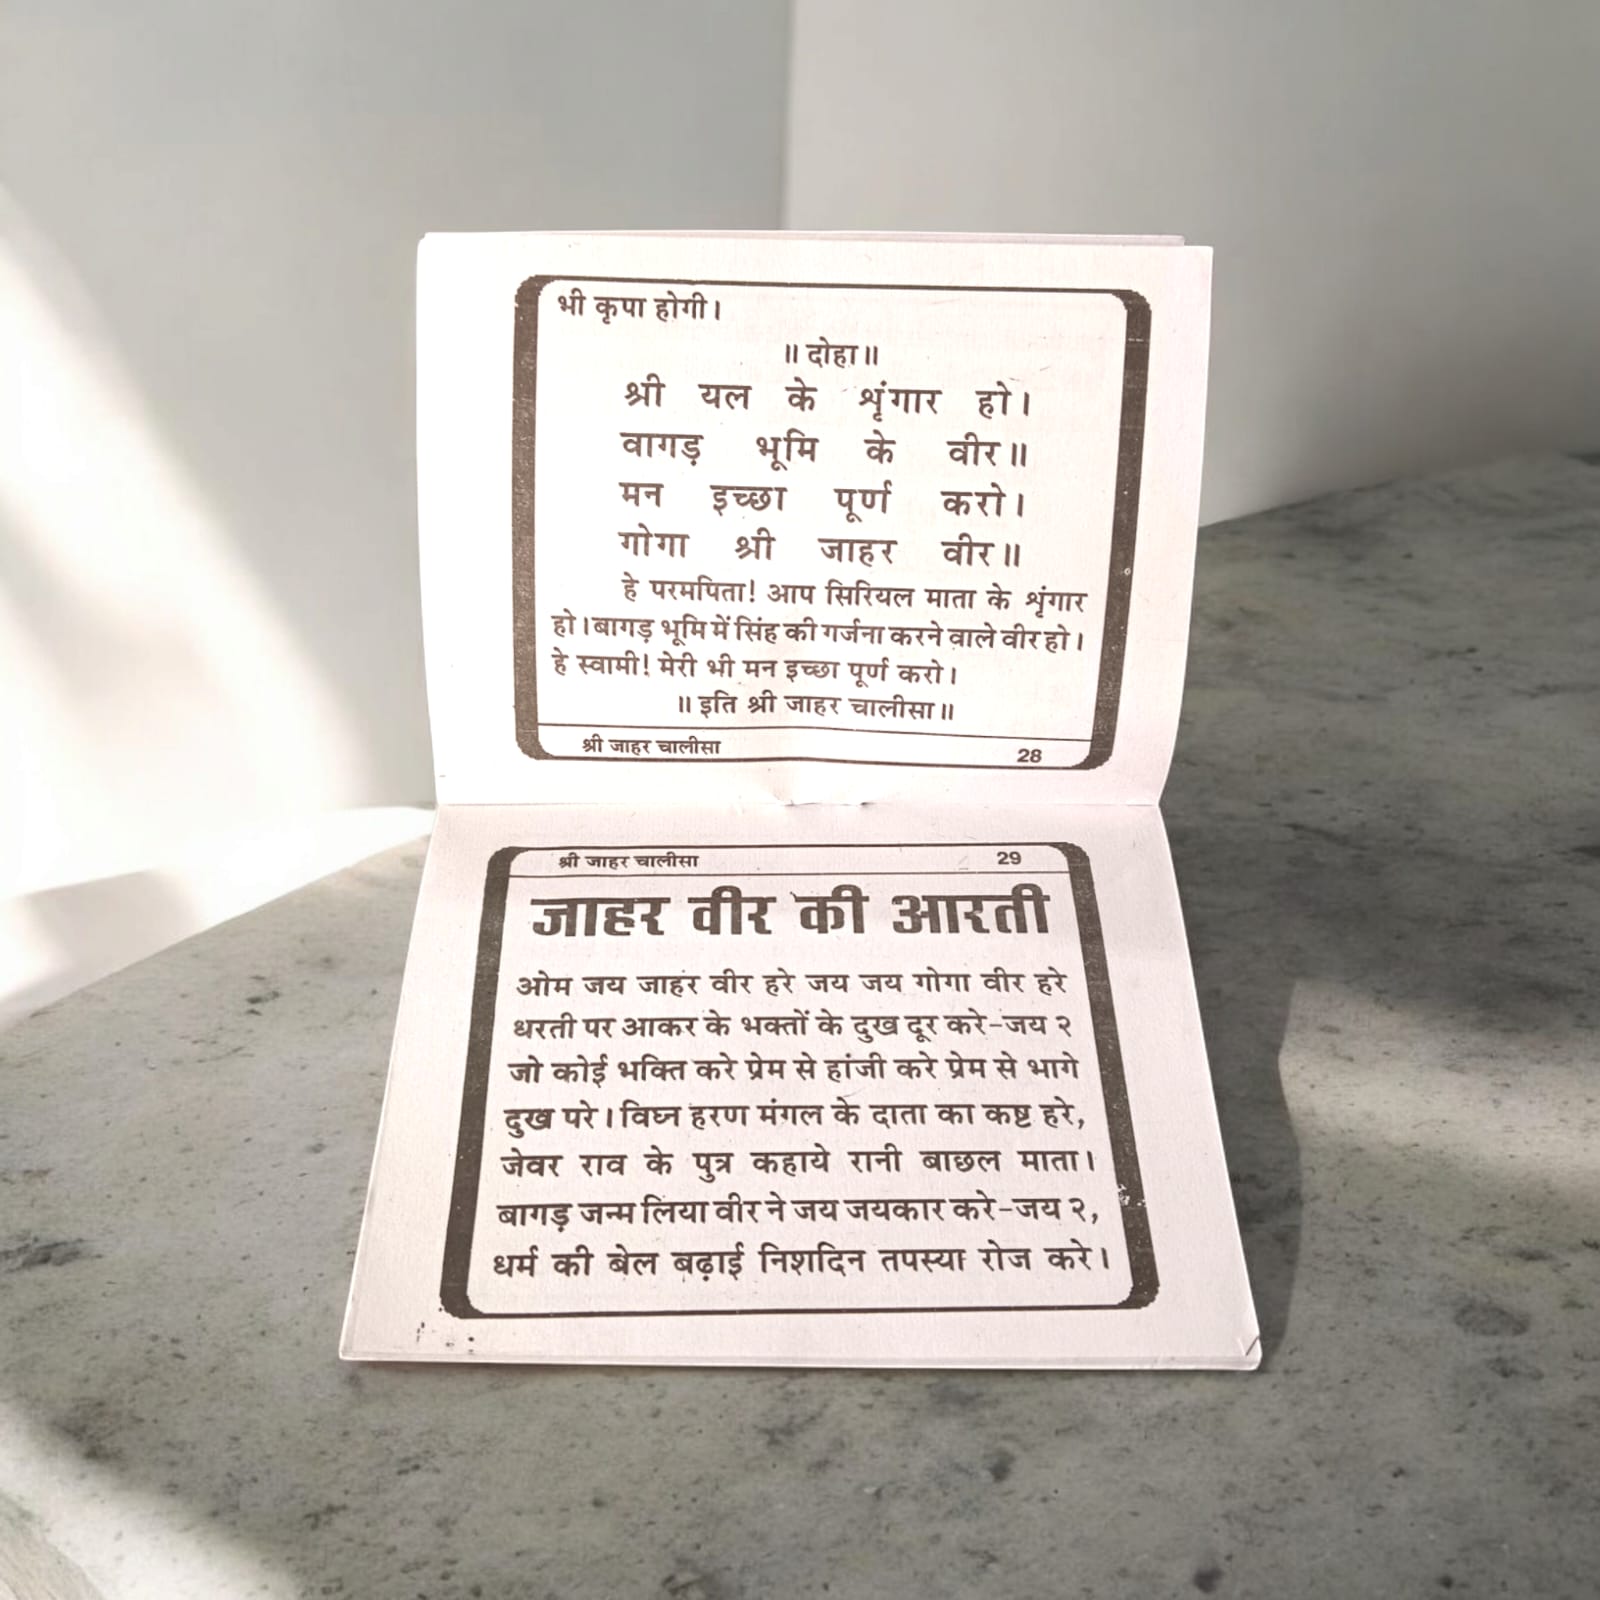 भी कृपा होगी।
॥ दोहा॥
श्री यल के शृंगार हो।
वागड़ भूमि के वीर॥
मन इच्छा पूर्ण करो।
गोगा श्री जाहर वीर॥
हे परमपिता! आप सिरियल माता के शृंगार
हो। बागड़ भूमि में सिंह की गर्जना करने वाले वीर हो।
हे स्वामी! मेरी भी मन इच्छा पूर्ण करो।
॥ इति श्री जाहर चालीसा॥
श्री जाहर चालीसा 28
श्री जाहर चालीसा 29
जाहर वीर की आरती
ओम जय जाहर वीर हरे जय जय गोगा वीर हरे
धरती पर आकर के भक्तों के दुख दूर करे-जय २
जो कोई भक्ति करे प्रेम से हांजी करे प्रेम से भागे
दुख परे। विघ्न हरण मंगल के दाता का कष्ट हरे,
जेवर राव के पुत्र कहाये रानी बाछल माता।
बागड़ जन्म लिया वीर ने जय जयकार करे-जय २,
धर्म की बेल बढ़ाई निशदिन तपस्या रोज करे।